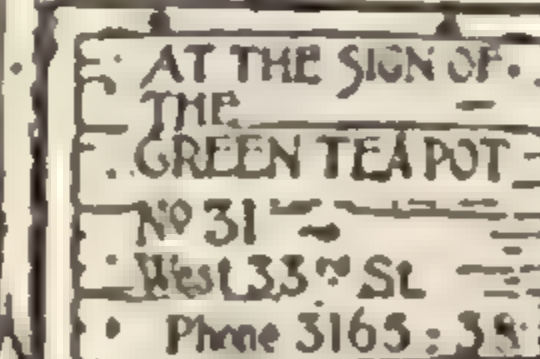 AT THE SIGN OF
THE
GREEN TEAPOT
No 31
West 33rd St
Phone 3165 : 38